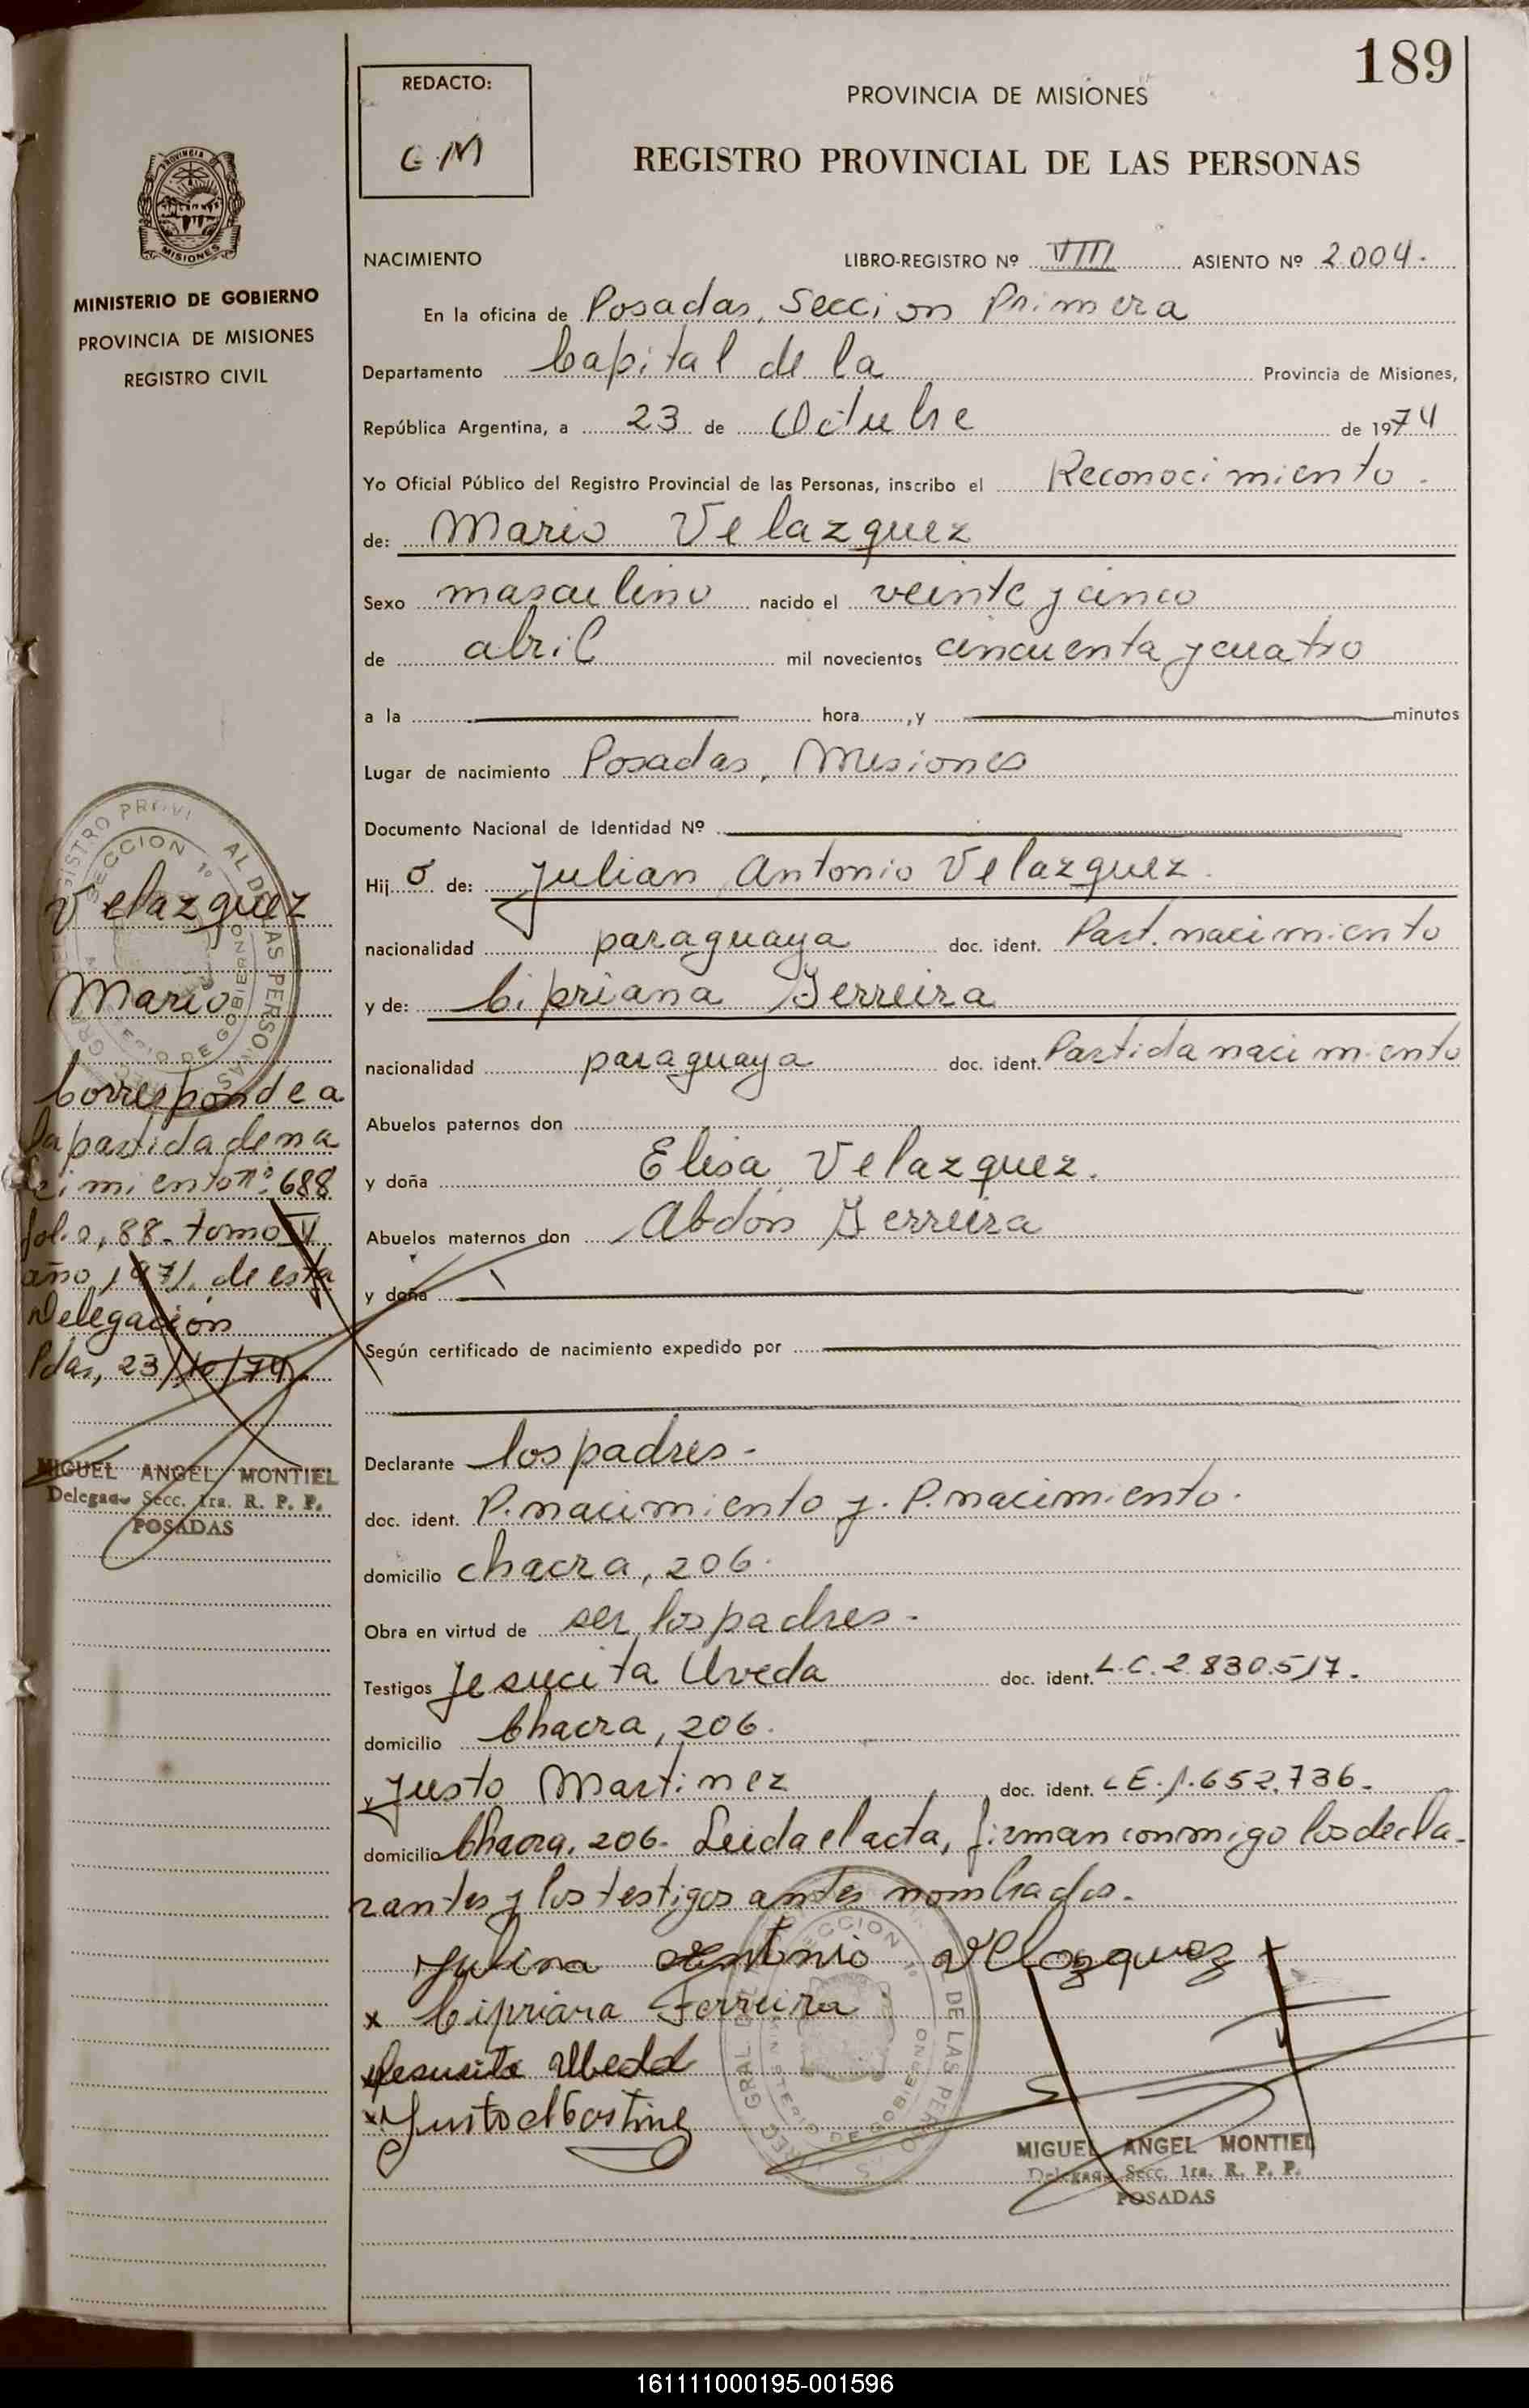 189
REDACTO:
G.M
PROVINCIA DE MISIONES
REGISTRO PROVINCIAL DE LAS PERSONAS
PROVINCIA DE
MISIONES
MINISTERIO DE GOBIERNO
PROVINCIA DE MISIONES
REGISTRO CIVIL
NACIMIENTO LIBRO-REGISTRO Nº VIII ASIENTO Nº 2.004.
En la oficina de Posadas, Seccion Primera
Departamento Capital de la Provincia de Misiones,
República Argentina, a 23 de Octubre de 1974
Yo Oficial Público del Registro Provincial de las Personas, inscribo el Reconocimiento.
de: Mario Velazquez
Sexo masculino nacido el veinte y cinco
de abril mil novecientos cincuenta y cuatro
a la hora, y minutos
Lugar de nacimiento Posadas, Misiones
Documento Nacional de Identidad Nº
Hijo de: Julian Antonio Velazquez.
nacionalidad paraguaya doc. ident. Part. nacimiento
y de: Cipriana Ferreira
nacionalidad paraguaya doc. ident. Partida nacimiento
Abuelos paternos don
y doña Elisa Velazquez.
Abuelos maternos don Abdon Ferreira
y doña
Según certificado de nacimiento expedido por
Declarante los padres-
doc. ident. P. nacimiento y. P. nacimiento.
domicilio chacra, 206.
Obra en virtud de ser los padres-
Testigos Jesucita Uveda doc. ident. L.C. 2.830.517-
domicilio Chacra, 206.
y Justo Martinez doc. ident. L.E. 1.652.736-
domicilio Chacra, 206- Leida el acta, firman conmigo los decla-
rantes y los testigos antes nombrados-
Julina Antonio Velazquez
x Cipriana Ferreira
x Jesusita
x Justo
MIGUEL ANGEL MONTIEL
Delegado Secc. 1ra. R. P. P.
POSADAS
Velazquez
Mario
Corresponde a
la partida de na
cimiento nº 688
folio, 88- tomo IV
año 1971, de esta
Delegación
Pdas, 23/10/74
MIGUEL ANGEL MONTIEL
Delegado Secc. 1ra. R. P. P.
POSADAS
161111000195-001596